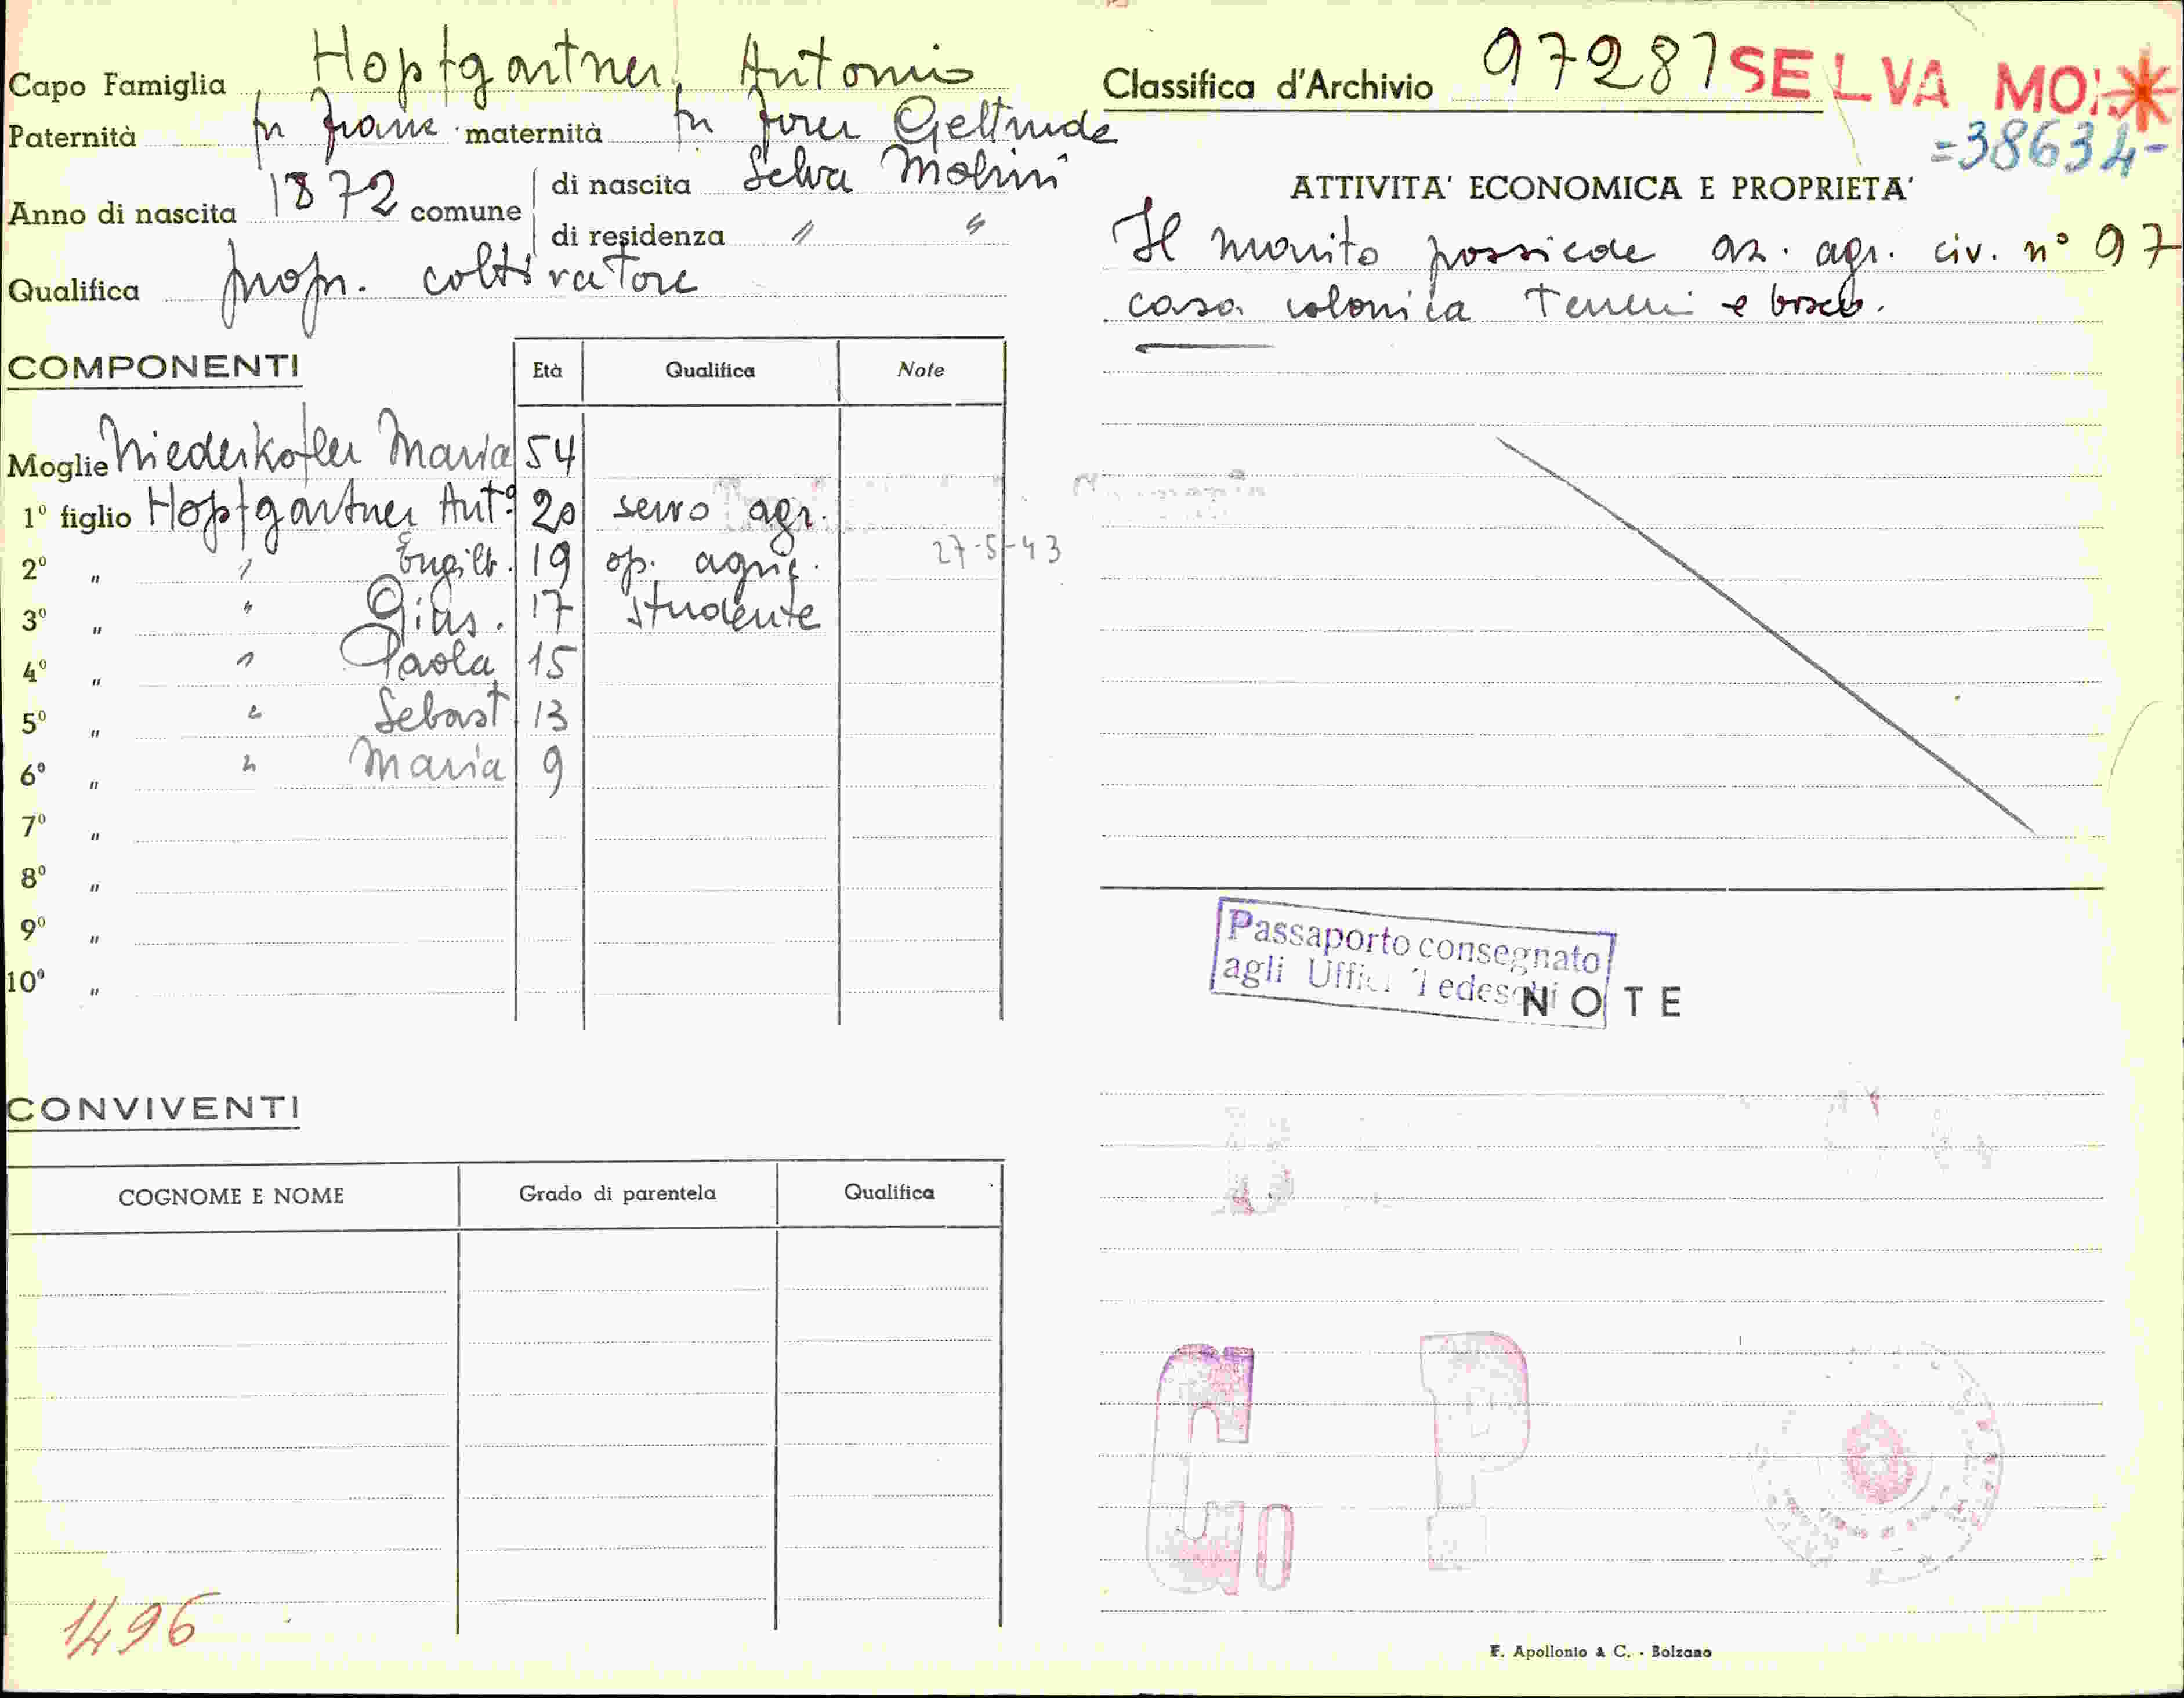 Capo Famiglia Hopfgartner Antonio
Paternità fu Franc. maternità fu Geltrude
Anno di nascita 1872 comune
di nascita Selva Molini
di residenza " "
Qualifica propr. coltivatore
COMPONENTI Età Qualifica Note
Moglie Niederkofler Maria 54
1º figlio Hopfgartner Antº 20 servo agr.
2º " " Engilb. 19 op. agric. 27-5-43
3º " " Gius. 17 studente
4º " " Paola 15
5º " " Sebast 13
6º " " Maria 9
7º "
8º "
9º "
10º "
CONVIVENTI
COGNOME E NOME Grado di parentela Qualifica
1496
Classifica d'Archivio 97287 SELVA MO
=38634-
ATTIVITA' ECONOMICA E PROPRIETA'
Il marito possiede az. agr. civ. nº 97
casa colonica terreni e bosco.
Passaporto consegnato
agli Uffici Tedeschi
NOTE
G P
F. Apollonio & C. - Bolzano